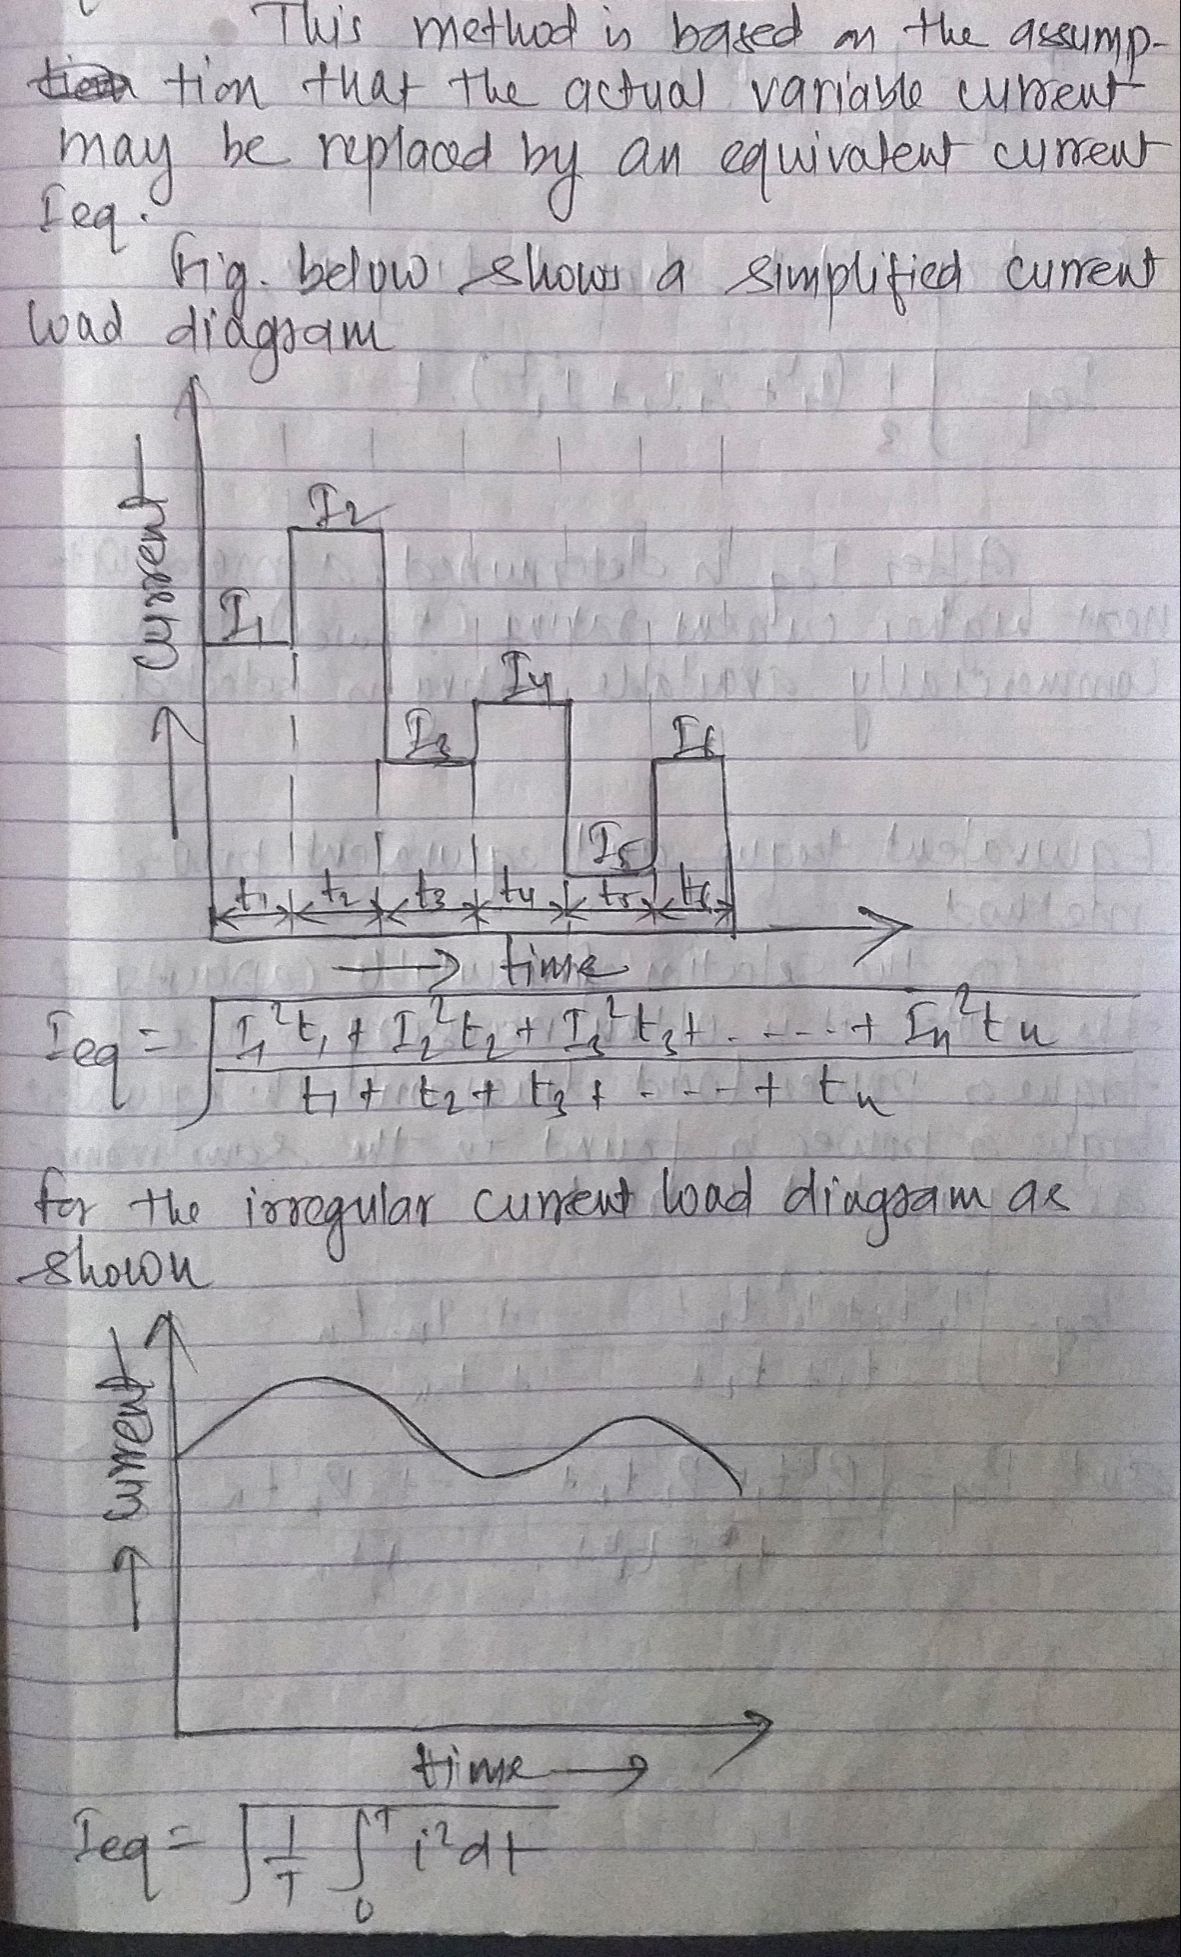 This method is based on the assump-
tion that the actual variable current
may be replaced by an equivalent current
Ieq.
Fig. below shows a simplified current
load diagram
Current
I₁
I₂
I₃
I₄
I₅
I₆
t₁ t₂ t₃ t₄ t₅ t₆
time
Ieq = √(I₁²t₁ + I₂²t₂ + I₃²t₃ + ...... + Iₙ²tₙ
t₁ + t₂ + t₃ + .... + tₙ)
for the irregular current load diagram as
shown
Current
time
Ieq = √(1/T ∫₀ᵀ i²dt)